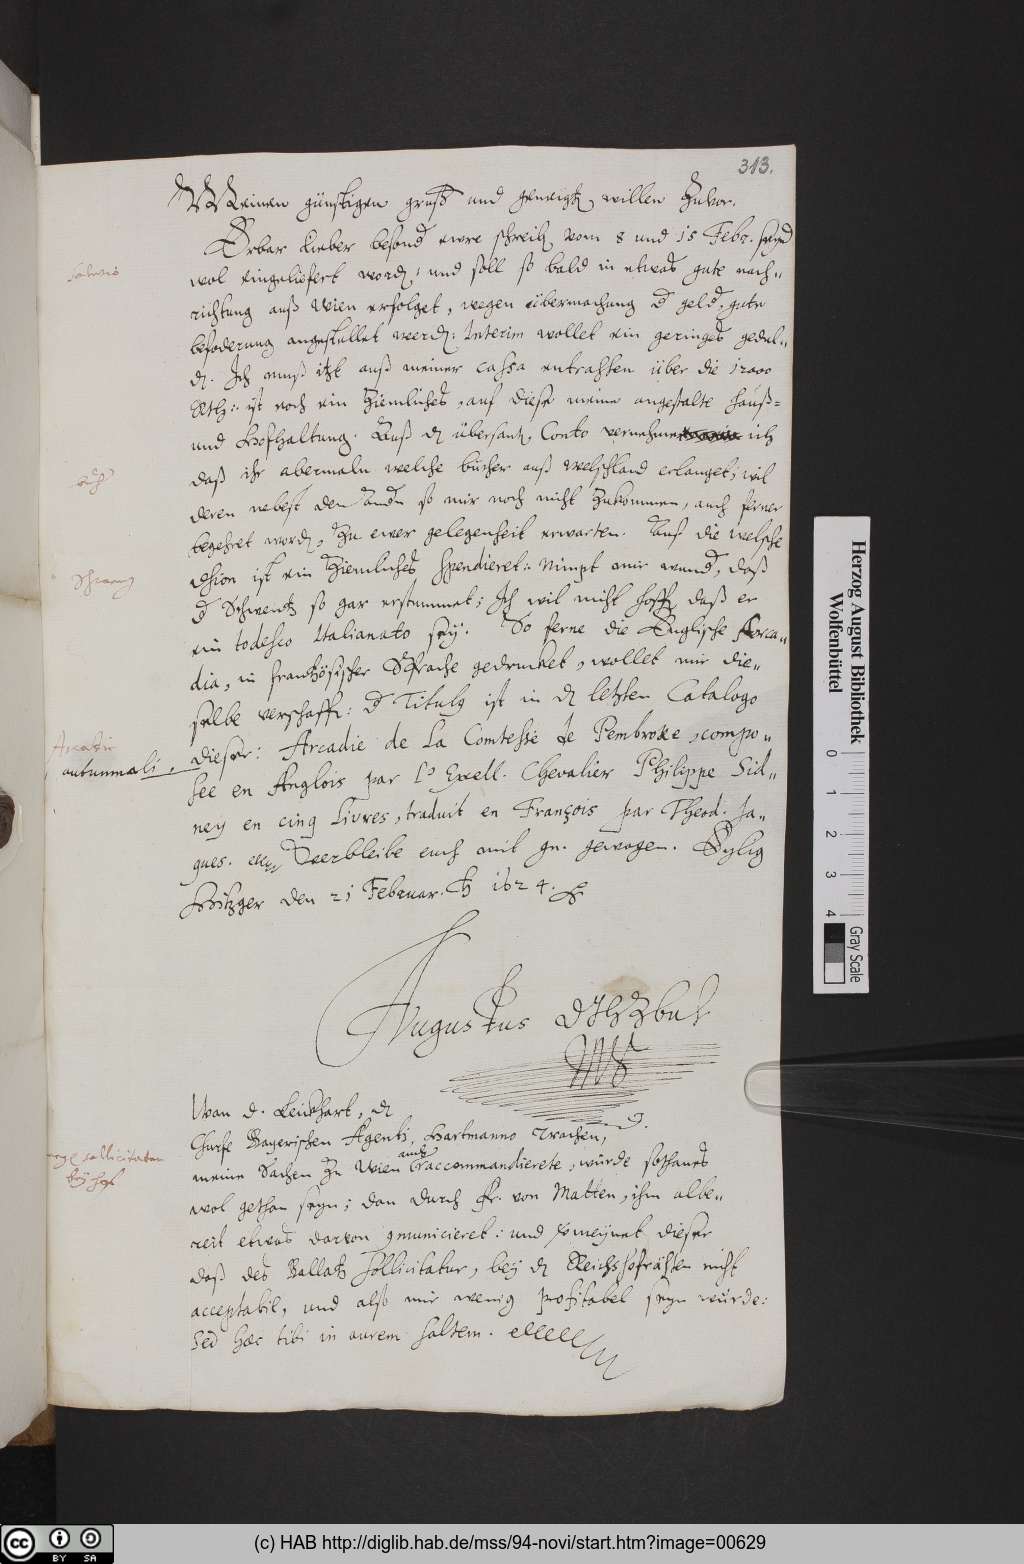 313.
Meinen günstigen gruß und geneigtē willen Zuvor.
Erbar Lieber besond ewre schreibē vom 8 und 15 Febr. seynd
wol eingeliefert wordē, und soll so bald in etwas gute nach-
richtung auß Wien erfolget, wegen übermachung d geld, gute
befoderung angestellet werdē: Interim wollet ein geringes gedul-
dē. Ich muß itzt auß meiner cassa entrahten über die 12000
Rth: ist noch ein Ziemliches, auf diese meine angestalte Hauß-
und Hofhaltung. Auß dē übersantē Conto vernehme ich
daß ihr abermaln welche bücher auß Welschland erlanget; wil
deren nebest den Andn so mir noch nicht Zukommen, auch ferner
begehret wordē, Zu ewer gelegenheit erwarten. Auf die welsche
ist ein Ziemliches spendieret: Nimpt mir wund, daß
d Schwentz so gar erstummet; Ich wil nicht hoffē daß er
ein todesco Italianato sey. So ferne die Englische Arca-
dia, in frantzösischer Sprache gedrucket, wollet mir die-
selbe verschaffē: d Titulg ist in dē letzten Catalogo
Arcadie
autunnali,
dieser: Arcadie de La Comtesse de Pembroke, compo-
see en Anglois par l' Exell. Chevalier Philippe Sid-
ney en cinq Livres, traduit en François par Theod. Ja-
ques. Verbleibe euch mit gn. gewogen. Eylig
Hitzger den 21 Februar. 1624.
Augustus
Wan d. Leuckhart, dē
Churfe Bayerischen Agenti, Hartmanno Trachen,
sollicitatur
bey hof
meine Sachen Zu Wien auch accommandierete, würde sothanes
wol gethan seyn; dan durch Hr. von Matten, ihm albe-
reit etwas darvon gmunicieret: und vermeynet dieser
daß des Ballatz sollicitatur, bey dē Reichshofrähten nicht
acceptabil, und also mir wenig profitabel seyn würde:
Sed hæc tibi in aurem saltem.
Herzog August Bibliothek
Wolfenbüttel
0 1 2 3 4
Gray Scale
cc BY SA
(c) HAB http://diglib.hab.de/mss/94-novi/start.htm?image=00629